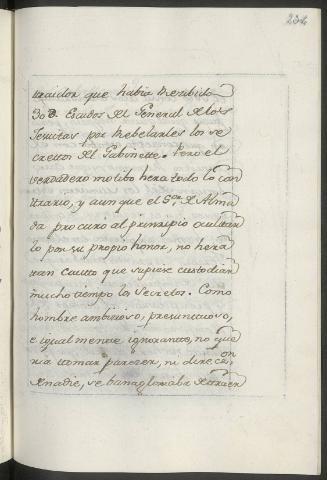 234
traidor que habia Rezibido
30 D. Escudos del General de los
Jesuitas por Rebelarles los se
cretos del Gabinette. Pero el
verdadero motibo hera todo lo con
trario, y aunque el Sor. de Alma
da procuro al prinsipio ocultar
lo por su propio honor, no hera
tan cautto que supiese custodiar
mucho tiempo los Secretos. Como
hombre ambisioso, presuntuoso,
e igual mente ignorantte, no que
ria tomar pareser, ni direccion
de nadie, se banagloriaba de traer